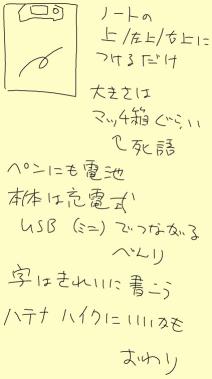 ノートの
上/左上/右上に
つけるだけ
大きさは
マッチ箱ぐらい
↑死語
ペンにも電池
本体は充電式
USB (ミニ) でつながる
べんり
字はきれいに書こう
ハテナ ハイクにいいかも
おわり